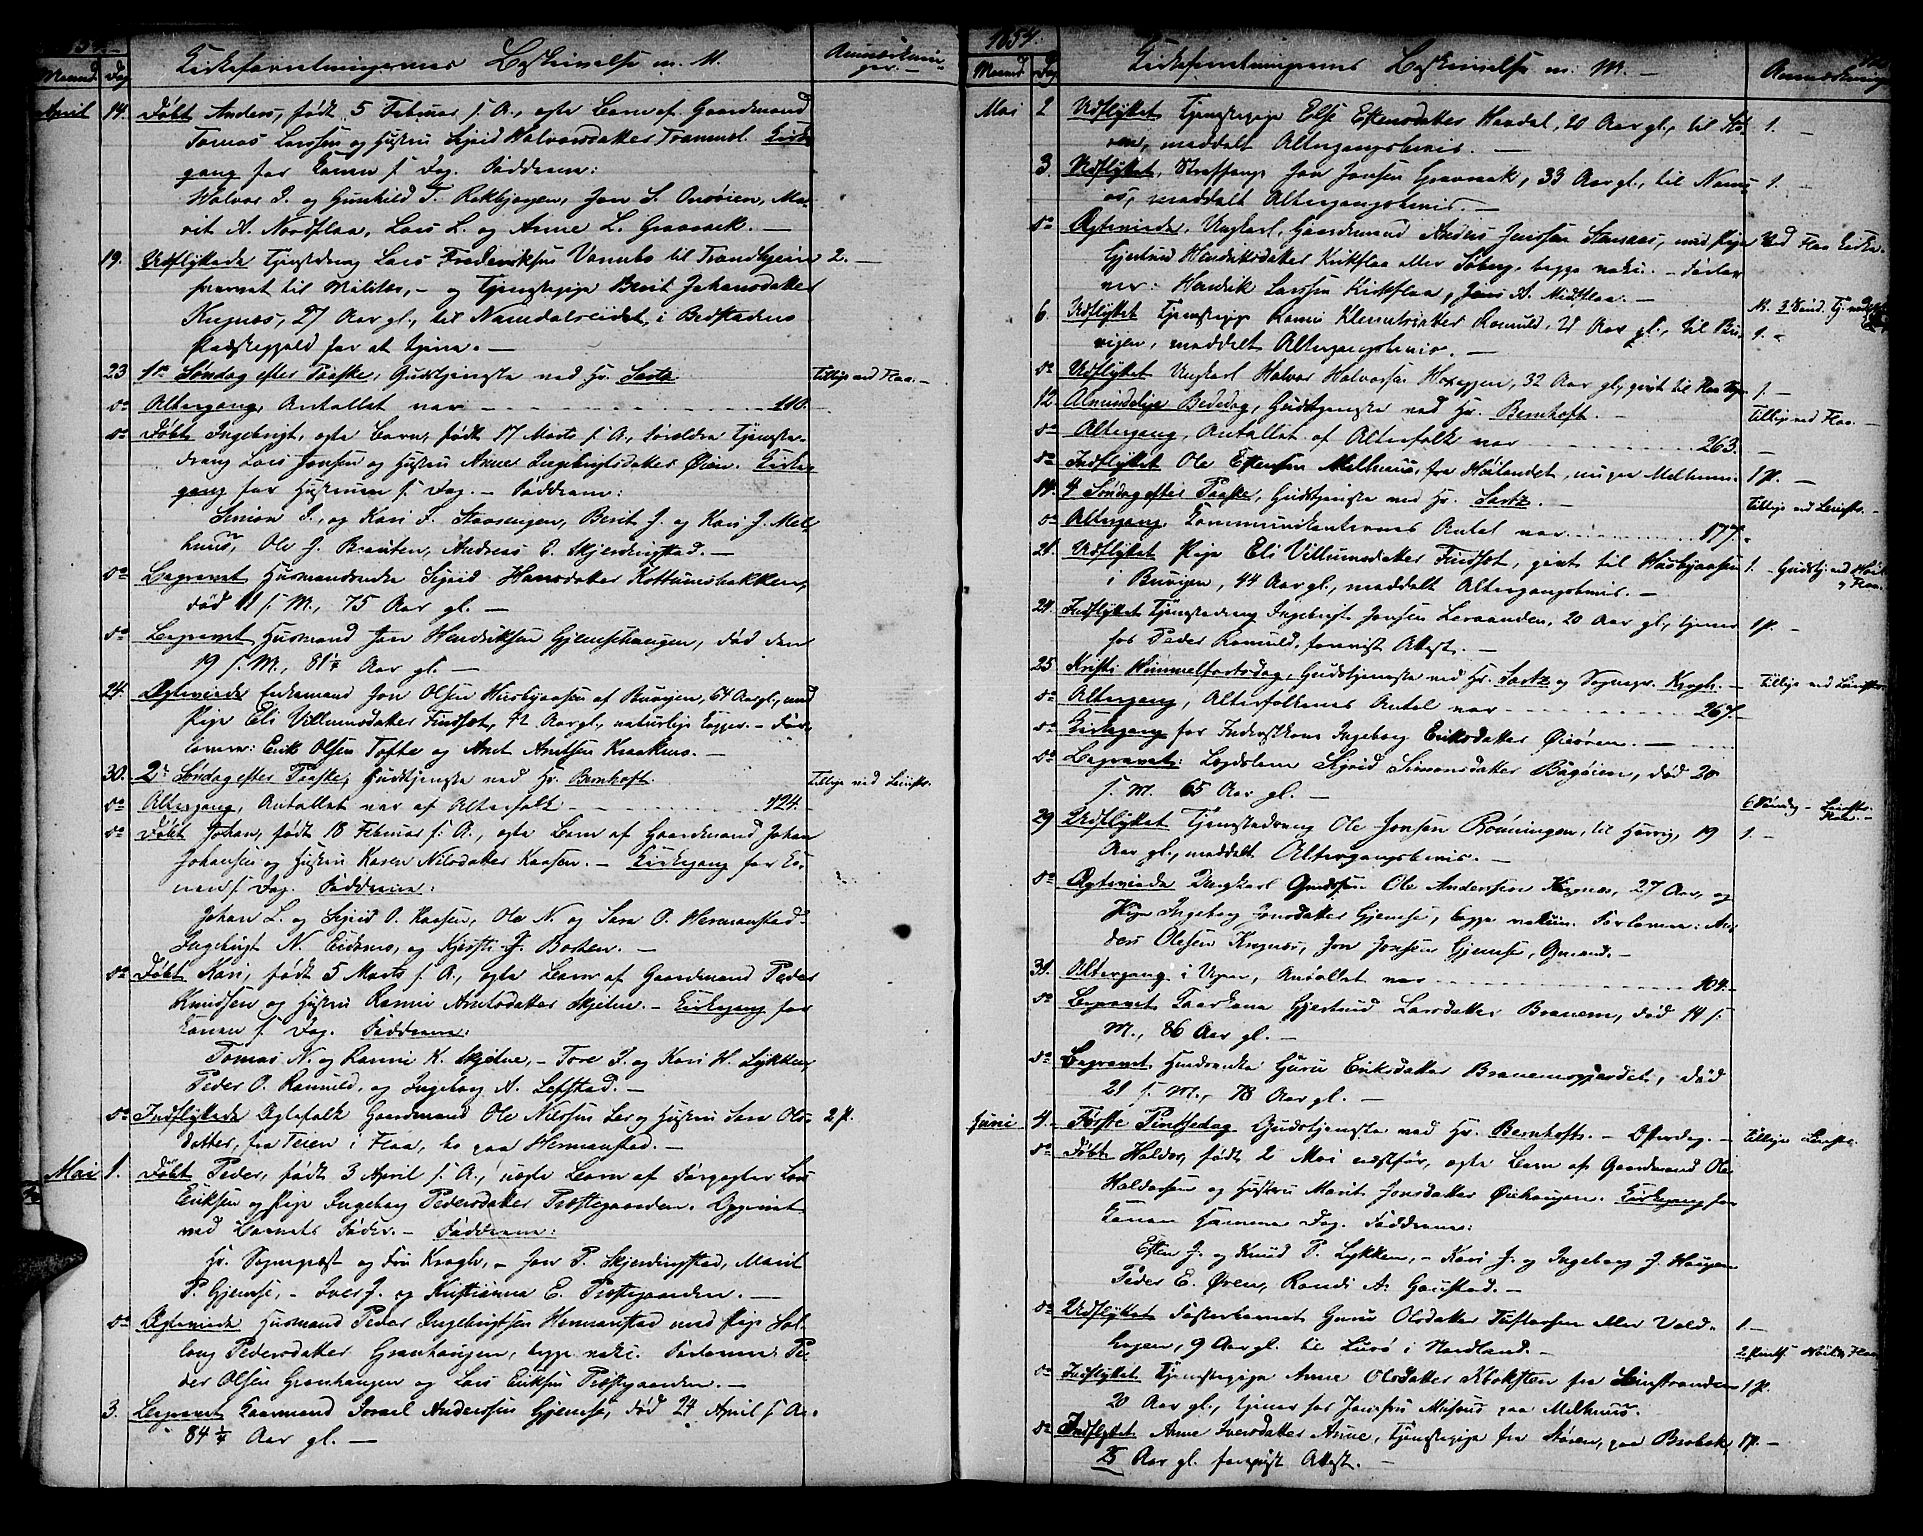 1854.
Maaned. Dag. Kirkeforretningernes Beskrivelse m. M. Anmærkninger.
April 14. Døbt Anders, født 5 Februar s. A., egte Barn af Gaardmand
Tomas Larssen og Hustru Sigrid Halvorsdatter Kirke-
gang for Konen s. Dag. Faddrene:
Halvor I. og Gunhild T. Rekbjørgen, Jon S. Ma-
rit A. Nordflaa, Lars L. og Anne L. Gravraak. —
19. Udflyttede Tjenstedreng Lars Frederiksen Vannebo til Trondhjem 2. —
til Militær, — og Tjenstepige Berit Johansdatter
Kregnes, 27 Aar gl., til Namdalseidet, i Bedstadens
Præstegjeld for at tjene. —
23 1ste Søndag efter Paaske, Gudstjeneste ved Hr. Sartz Tillige ved Flaa. —
do Altergang, Antallet var — 110.
do Døbt Ingebrigt, egte Barn, født 17 Marts s. A., Forældre Tjenste-
dreng Lars Jonsen og Hustru Anne Ingebrigtsdatter Øien. Kirke-
gang for Hustruen s. Dag. — Faddrene:
Simon I., og Kari S. Berit J. og Kari J. Mel-
huus, Ole J. Braaten, Andreas E. Skjerdingstad. —
do Begravet Husmandsenke Sigrid Hansdatter Kottumsbakken,
død 11 s. M., 75 Aar gl. —
do Begravet Husmand Jon Henriksen Gjemsehaugen, død den
19 s. M., 81¼ Aar gl. —
24. Ægteviede Enkemand Jon Olsen Husbyaasen af Buvigen, 64 Aar gl., med
Pige Eli Villumsdatter Findset, 42 Aar gl., naturlige Kopper. — For-
lovere: Erik Olsen Tofte og Arnt Arntsen Kraaknes. —
30. 2den Søndag efter Paaske, Gudstjeneste ved Hr. Bernhoft Tillige ved Leinstr.
do Altergang, Antallet var af Alterfolk — 124.
do Døbt Johan, født 18 Februar s. A., egte Barn af Gaardmand Johan
Johansen og Hustru Karen Nilsdatter Kaasen. — Kirkegang for Ko-
nen s. Dag. Faddrene:
Johan L. og Sigrid O. Kaasen, Ole N. og Sara O. Hermanstad
Ingebrigt N. Eidsmo, og Kjersti J. Bosten. —
do Døbt Kari, født 5 Marts s. A., egte Barn af Gaardmand Peder
Knudsen og Hustru Rannie Arntsdatter Skjetne. — Kirkegang for
Konen s. Dag. Faddrene:
Tomas N. og Rannie K. Skjetne, — Tore I. og Kari H. Lykken,
Peder O. Ramuld, og Ingeborg A. Lefstad. —
do Indflyttede Egtefolk Gaardmand Ole Nilssen Ler og Hustru Sara Ols- 2 p.
datter, fra Teien i Flaa, bo paa Hermanstad. —
Mai 1. Døbt Peder, født 3 April s. A., uegte Barn af Forpagter Lars
Eriksen og Pige Ingeborg Pedersdatter Præstegaarden. Opgivet
ved Barnets Fader. — Faddrene:
Hr. Sognepræst og Fru Krogh, — Jon P. Skjerdingstad, Marit
P. Gjemse, — Iver J. og Kristianna E. Præstegaarden. —
do Ægteviede Husmand Peder Ingebrigtsen Hermanstad med Pige Sol-
laug Pedersdatter Granhaugen, begge vakc. Forlovere: Pe-
der Olsen Granhaugen og Lars Eriksen Præstegaarden. —
3. Begravet Gaardmand Israel Anderssen Gjemse, død 24 April s. A.
84¼ Aar gl. —
1854
Maaned Dag Kirkeforretningernes Beskrivelse m: M. — Anmærkninger
Mai 2 Udflyttet Tjenstepige Else Estensdatter Havdal, 20 Aar gl., til Stø- 1. —
ren, meddelt Altergangsbevis. —
3. Udflyttet, Straffange Jon Jonsen Gravraak, 33 Aar gl., til Nams- 1. —
os, meddelt Altergangsbevis. —
do Ægteviede, Ungkarl, Gaardmand Anders Jenssen med Pige Ved Flaa Kirke
Gjertrud Henriksdatter Kirkflaa eller Søberg, begge vakc. — Forlov-
ere: Henrik Larssen Kirkflaa, Jens A. Midtflaa. —
6. Udflyttet Tjenstepige Klemetsdatter Ramuld, 21 Aar gl., til Bu- 1. —
vigen, meddelt Altergangsbevis. —
do Udflyttet Ungkarl Halvor Halvorsen 32 Aar gl., givt til 1. —
12 Almindelige Bededag, Gudstjeneste ved Hr. Bernhoft. — Tillige ved Flaa. —
do Altergang, Antallet af Alterfolk var — 263. —
do Indflyttet Ole Estensen Melhuus, fra Høilandet, Melhuus. 1 p. —
14. 4 Søndag efter Paaske, Gudstjeneste ved Hr. Sartz. — Tillige ved Leinstr. —
do Altergang, Kommunikanternes Antal var — 177. —
21. Udflyttet Pige Eli Villumsdatter Findset, givt til Husbyaasen 1. — Gudstj. ved Høil. og Flaa.
i Buvigen, 44 Aar gl., meddelt Altergangsbevis. —
24. Indflyttet Tjenstedreng Ingebrigt Jonsen Leraanden, 20 Aar gl., tjener 1 p. —
for Peder Ramuld, forevist Attest. —
25. Kristi Himmelfartsdag, Gudstjeneste ved Hr. Sartz og Sognepr. Krogh. — Tillige ved Leinstr.
do Altergang, Alterfolkenes Antal var — 267. —
do Kirkegang for Inderstkone Ingeborg Eriksdatter Øieøren. —
do Begravet: Lægdslem Sigrid Simonsdatter Bagøien, død 20
s. M. 65 Aar gl. — 6 Søndag — Leinstr. Flaa. —
29 Udflyttet Tjenstedreng Ole Jonsen Rønningen, til Horrig, 19 1. —
Aar gl., meddelt Altergangsbevis. —
do Ægteviede Ungkarl Ole Anderssen Kregnes, 27 Aar, og
Pige Ingeborg Jonsdatter Gjemse, begge vakcin. Forlovere: An-
ders Olesen Kregnes, Jon Jonsen Gjemse, Gmand. —
31. Altergang i Ugen, Antallet var — 104. —
do Begravet Gjertrud Larsdatter Braneem, død 14 s.
M., 86 Aar gl. —
do Begravet Guru Eriksdatter Braneemsgjerdet, død
21 s. M., 78 Aar gl. —
Juni 4. Første Pintsedag Gudstjeneste ved Hr. Bernhoft. — Offerdag. — Tillige Leinstr.
do Døbt Haldor, født 2 Mai næstfør, egte Barn af Gaardmand Ole
Haldorsen og Hustru Marit Jonsdatter Øiehaugen. Kirkegang for
Konen samme Dag. Faddrene:
Esten J. og Knud P. Lykken, — Kari J. og Ingeborg J. Haugen
Peder E. Øren, Randi A. Gaustad. —
do Udflyttet Fosterbarnet Guru Olsdatter Tustøsen eller Vold- 1. —
haugen, 9 Aar gl. til Lurø i Nordland. — 2 Pintsd. Høil. Flaa
do Indflyttet Tjenstepige Anne Olsdatter Kloksten fra Leinstranden 1 p.
20 Aar gl., tjener for paa Melhuus.
do Indflyttet Anne Iversdatter Aune, Tjenstepige fra Støren, paa Brobek, 1 p. —
25 Aar gl. forevist Attest. —